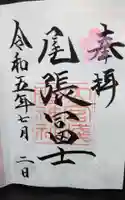 奉拝
尾張冨士
令和五年七月二日